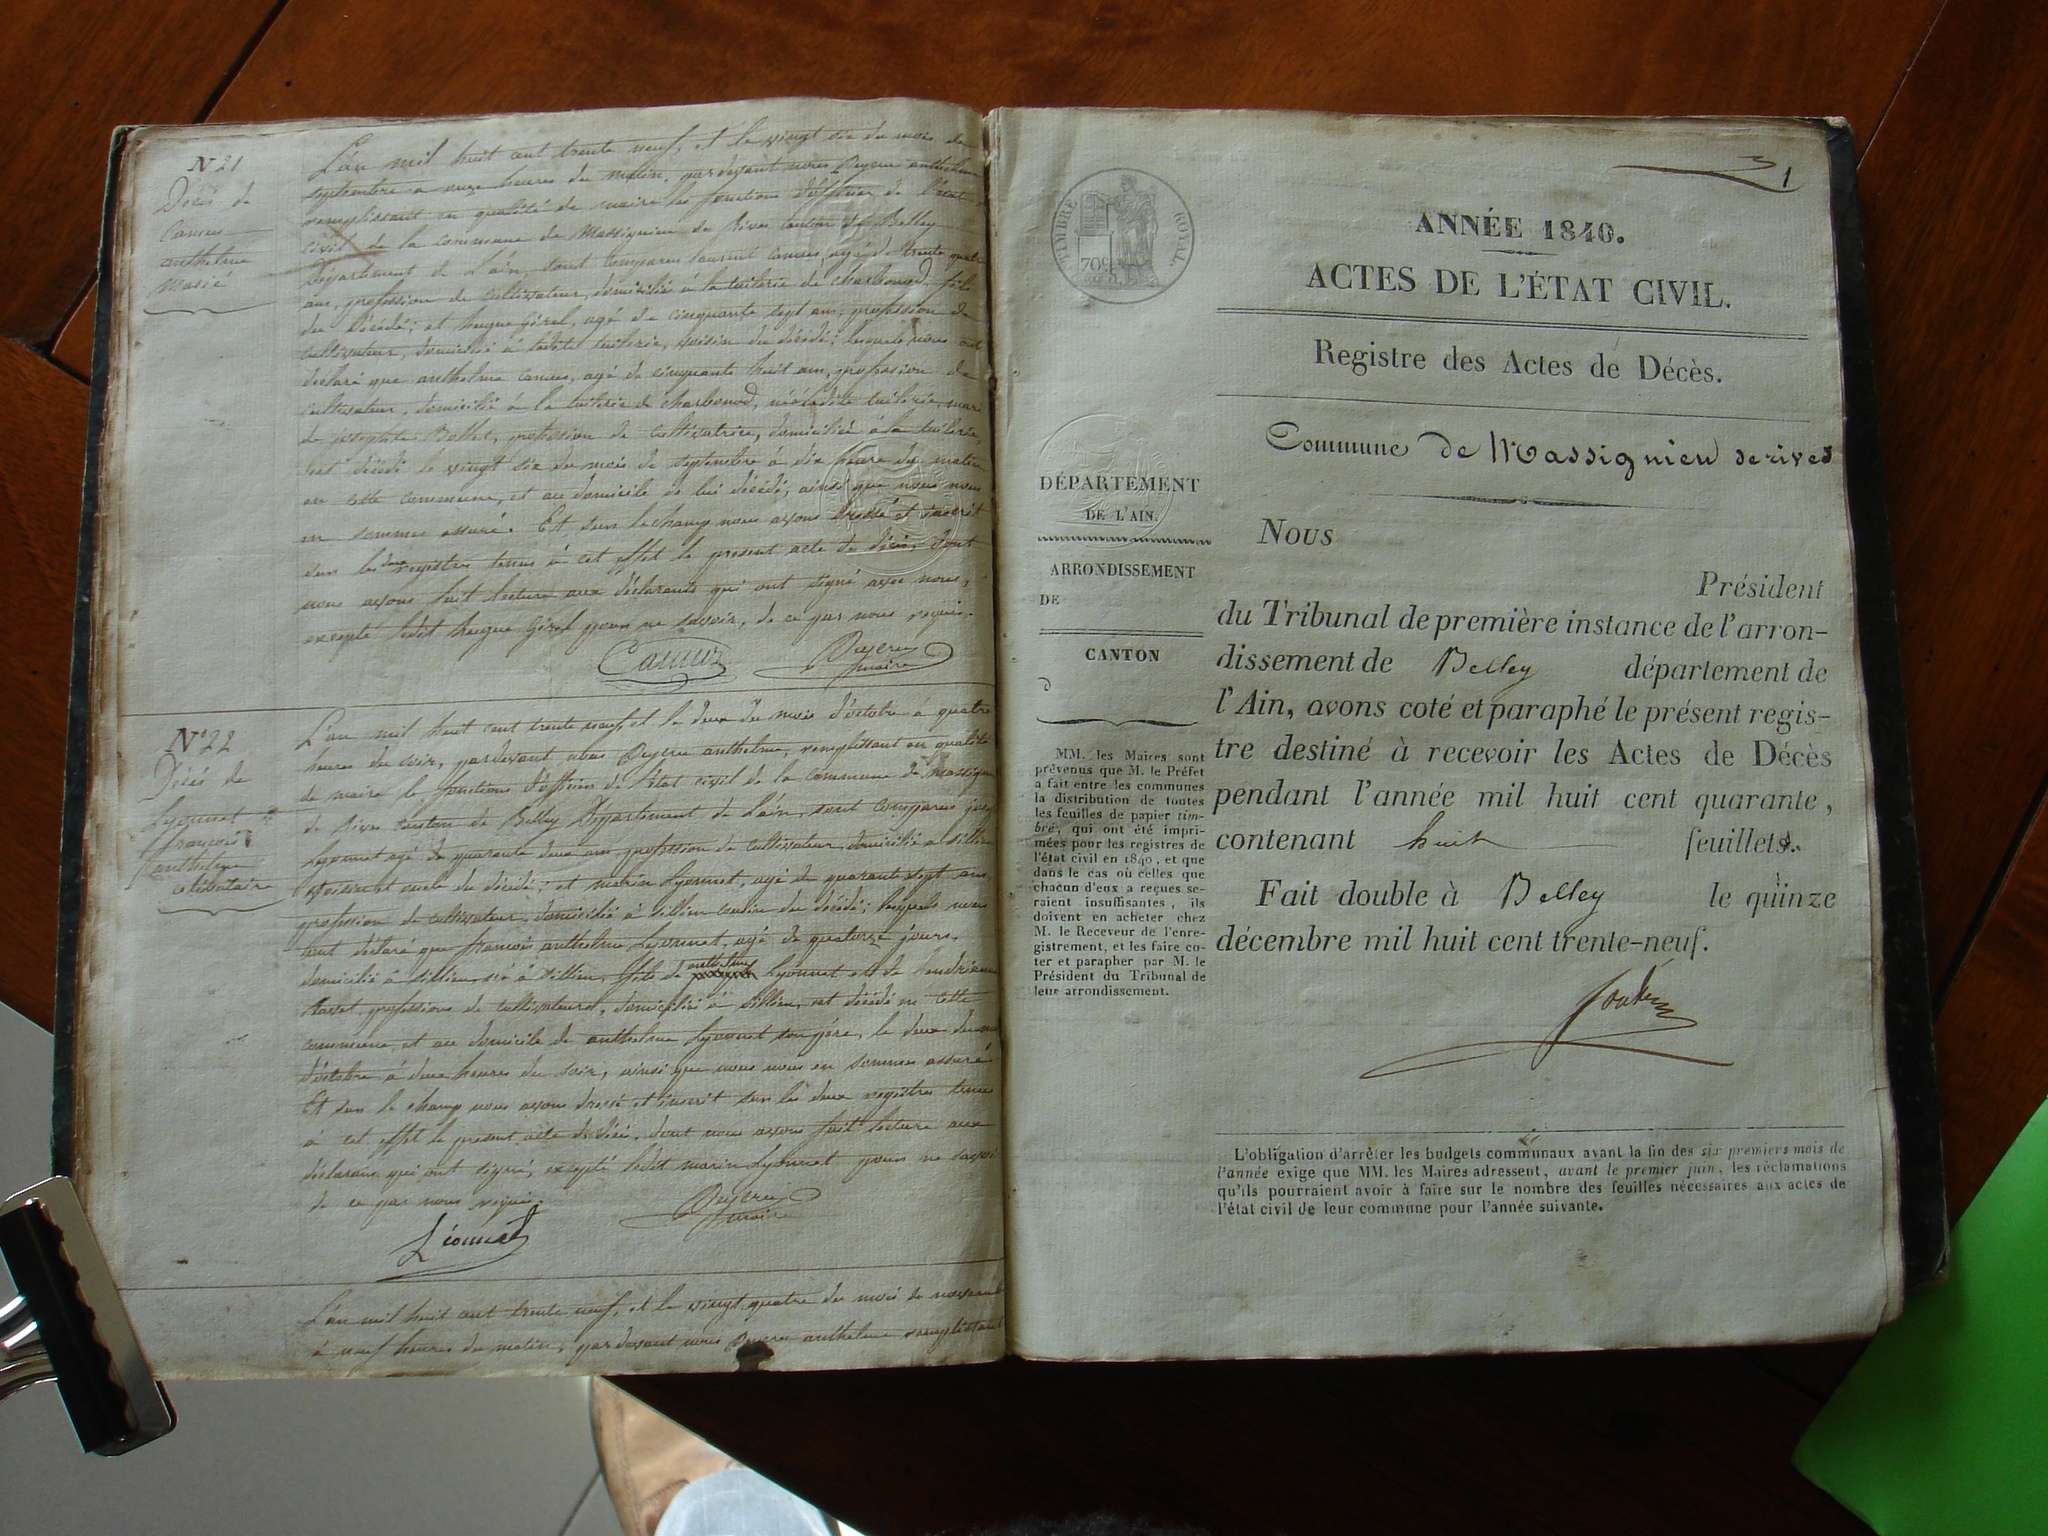 N 21
Décès de
Camus
anthelme
Marié
L'an mil huit cent trente neuf, et le vingt six du mois de
septembre à onze heures du matin, pardevant nous Peysru anthelme
remplissant en qualité de maire les fonctions d'officier de l'état
civil de la commune de Massignieu de Rives canton de Belley
Département de l'ain, sont comparus Laurent Camus, agé de trente quatre
ans, profession de cultivateur, domicilié à la tuilerie de charbonod, fils
du décédé; et hugue Girel, agé de cinquante sept ans, profession de
cultivateur, domicilié à ladite tuilerie, voisin du décédé; lesquels nous ont
declaré que anthelme camus, agé de cinquante huit ans, profession de
cultivateur, domicilié à la tuilerie de charbonod, né à ladite tuilerie, mari
de josephte Bollet, profession de cultivatrice, domiciliée à la tuilerie,
est décédé le vingt six du mois de septembre à dix heure du matin
en cette commune, et au domicile de lui décédé, ainsi que nous nous
en sommes assuré. Et sur le champ nous avons dressé et inscrit
sur les deux registres tenus à cet effet le présent acte de décès, dont
nous avons fait lecture aux déclarants qui ont signé avec nous,
excepté ledit hugue Girel pour ne savoir, de ce par nous requis.
Camus
maire
N° 22
Décés de
Lyonnet
françois
anthelme
célibataire
L'an mil huit cent trente neuf, et le deux du mois d'octobre à quatre
heures du soir, pardevant nous anthelme, remplissant en qualité
de maire le fonctions d'officier de l'état civil de la commune de Massignieu
de Rives canton de Belley Département de L'ain, sont comparus
Lyonnet agé de quarante deux ans profession de cultivateur, domicilié a sillien
voisin et oncle du décédé; et marin Lyonnet, agé de quarante sept ans,
profession de cultivateur, domicilié à sillien cousin du décédé; lesquels nous
ont déclaré que françois anthelme Lyonnet, agé de quatorze jours,
domicilié à sillien, né à sillien, fils de anthelme Lyonnet et de
professions de cultivateurs, domicilié à sillien, est décédé en cette
commune, et au domicile de anthelme Lyonnet son père, le deux du mois
d'octobre à deux heures du soir, ainsi que nous nous en sommes assuré
Et sur le champ nous avons dressé et inscrit sur les deux registres tenus
à cet effet le present acte de décé, dont nous avons fait lecture aux
déclarans qui ont signé, excepté ledit marin Lyonnet pour ne savoir
de ce par nous requis.
Léonnet
maire
L'an mil huit cent trente neuf, et le vingt quatre du mois de novembre
à neuf heures du matin, pardevant nous anthelme remplissant
1
TIMBRE ROYAL.
70c
ANNÉE 1840.
ACTES DE L'ÉTAT CIVIL.
Registre des Actes de Décès.
Commune de Massignieu de rives
DÉPARTEMENT
DE L'AIN.
ARRONDISSEMENT
DE
CANTON
d
MM. les Maires sont
prévenus que M. le Préfet
a fait entre les communes
la distribution de toutes
les feuilles de papier tim-
bré, qui ont été impri-
mées pour les registres de
l'état civil en 1840, et que
dans le cas où celles que
chacun d'eux a reçues se-
raient insuffisantes, ils
doivent en acheter chez
M. le Receveur de l'enre-
gistrement, et les faire co-
ter et parapher par M. le
Président du Tribunal de
leur arrondissement.
Nous
Président
du Tribunal de première instance de l'arron-
dissement de Belley département de
l'Ain, avons coté et paraphé le présent regis-
tre destiné à recevoir les Actes de Décès
pendant l'année mil huit cent quarante,
contenant huit feuillets.
Fait double à Belley le quinze
décembre mil huit cent trente-neuf.
L'obligation d'arrêter les budgets communaux avant la fin des six premiers mois de
l'année exige que MM. les Maires adressent, avant le premier juin, les réclamations
qu'ils pourraient avoir à faire sur le nombre des feuilles nécessaires aux actes de
l'état civil de leur commune pour l'année suivante.